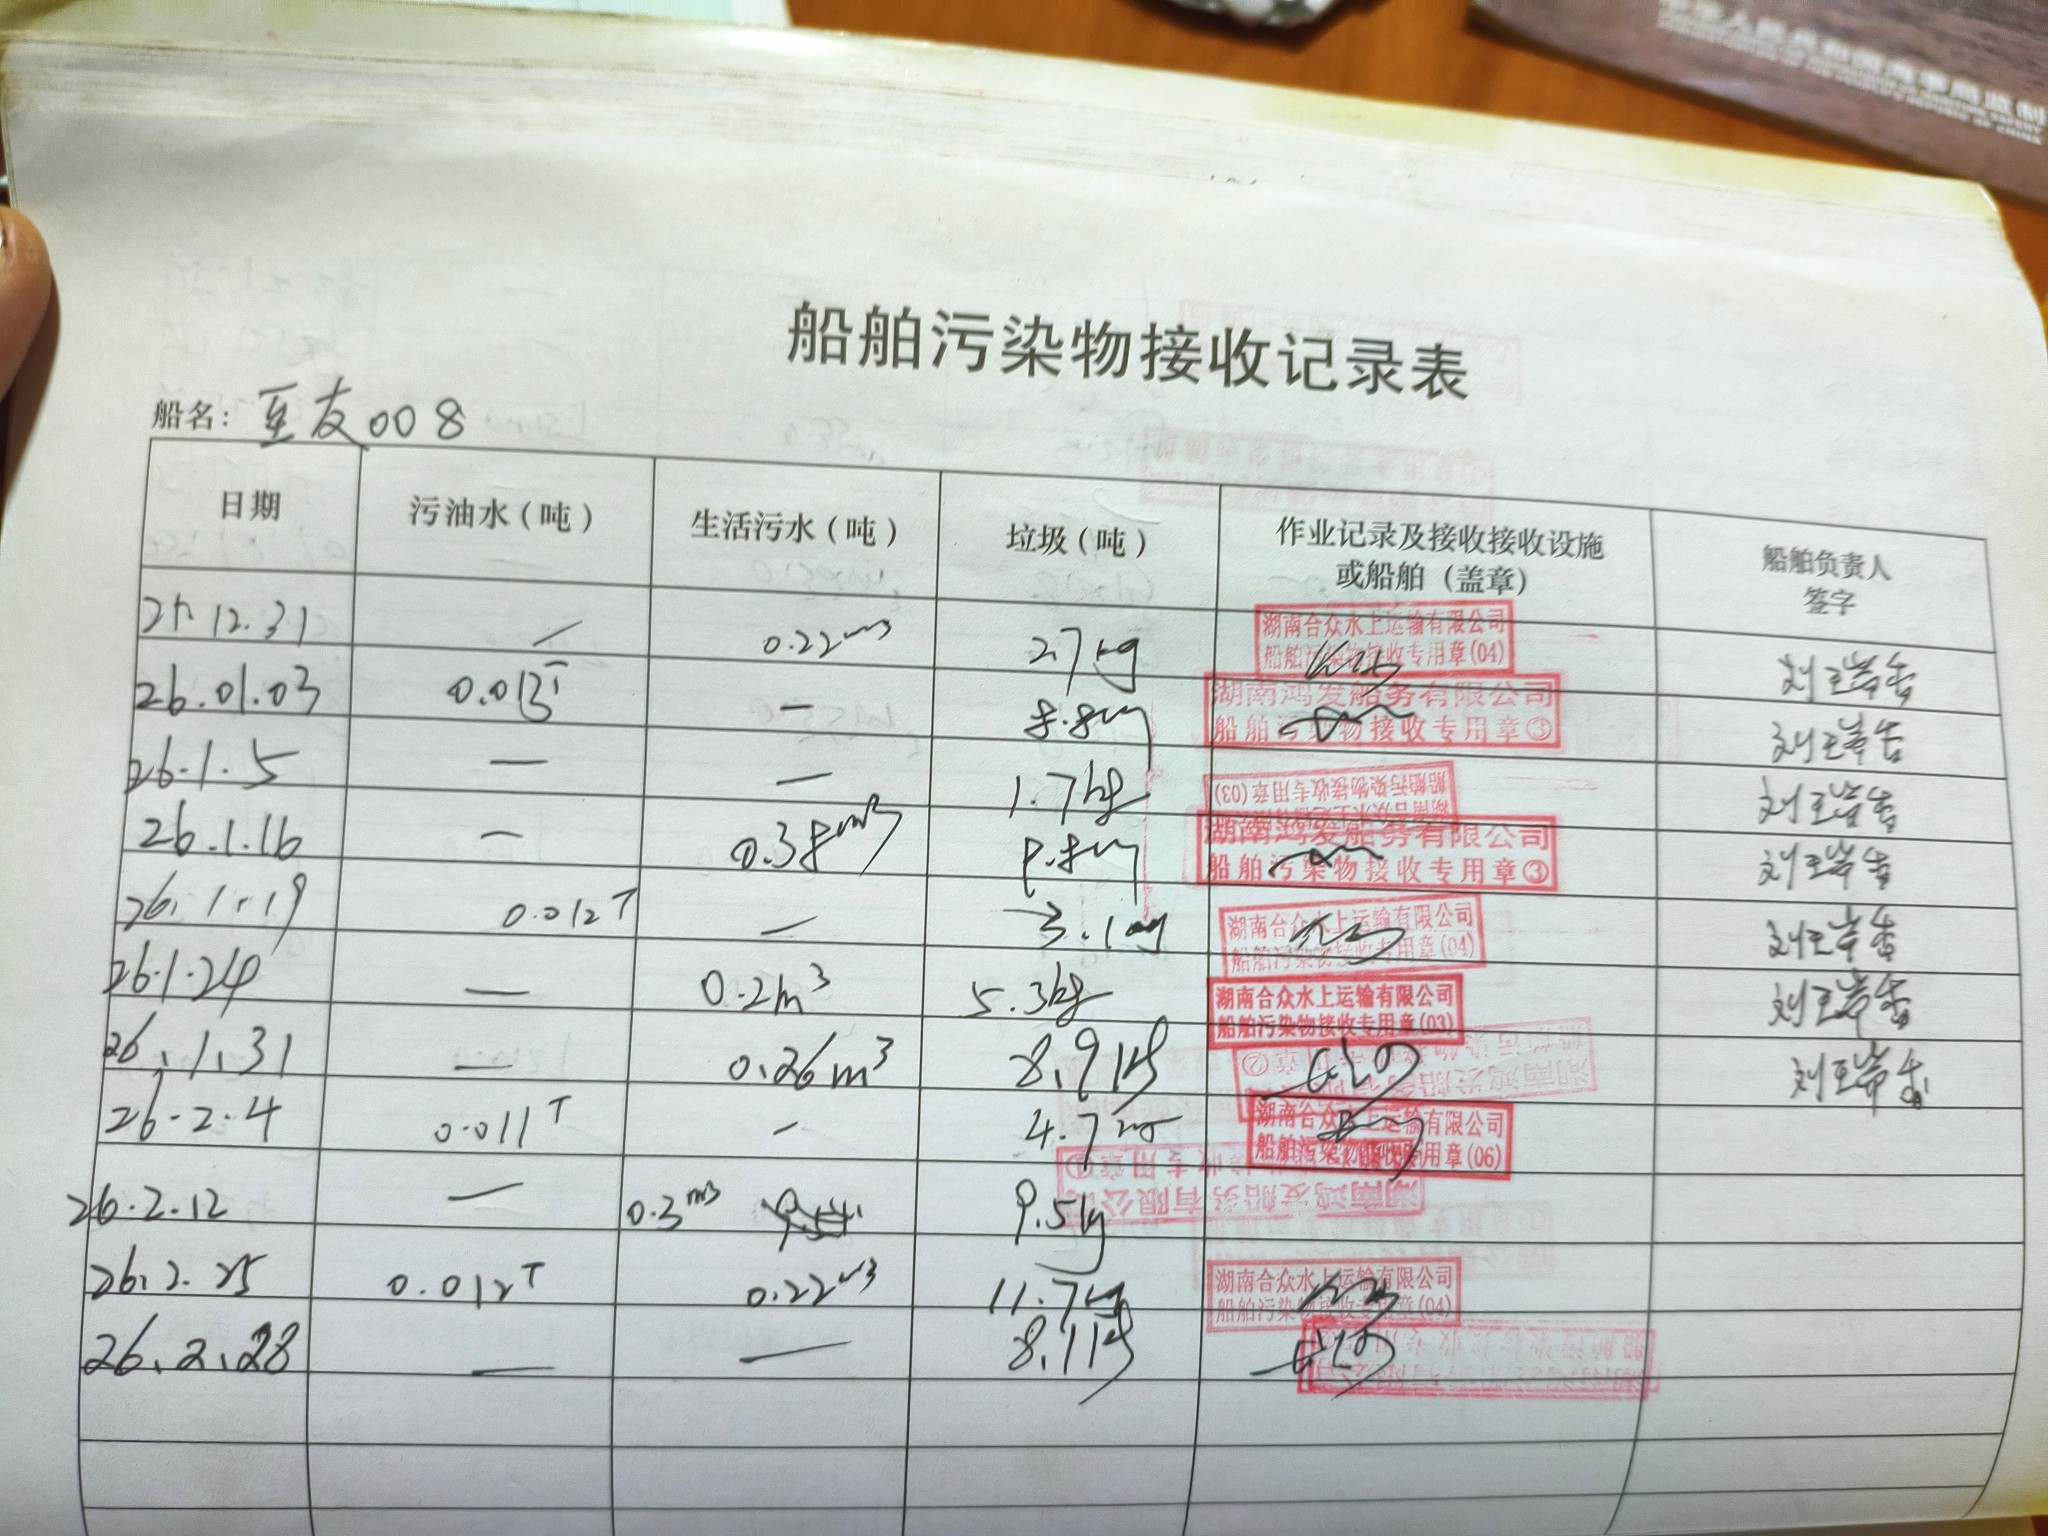 中华人民共和国海事局监制
船舶污染物接收记录表
船名：至友008
日期 污油水（吨） 生活污水（吨） 垃圾（吨） 作业记录及接收接收设施或船舶（盖章） 船舶负责人签字
25.12.31 / 0.22m3 2.7kg 湖南合众水上运输有限公司 船舶污染物接收专用章(04)
26.01.03 0.013T — 8.8kg 湖南鸿发船务有限公司 船舶污染物接收专用章③
26.1.5 — — 1.7kg 船舶污染物接收专用章(03)
26.1.16 — 0.38m3 8.8kg 湖南鸿发船务有限公司 船舶污染物接收专用章③
26.1.19 0.012T — 3.1kg 湖南合众水上运输有限公司 船舶污染物接收专用章(04)
26.1.24 — 0.2m3 5.3kg 湖南合众水上运输有限公司 船舶污染物接收专用章(03)
26.1.31 — 0.26m3 8.9kg 湖南鸿发船务有限公司 ②
26.2.4 0.011T — 4.7kg 湖南合众水上运输有限公司 船舶污染物接收专用章(06)
26.2.12 — 0.3m3 9.5kg 湖南鸿发船务有限公司 ①
26.2.25 0.012T 0.22m3 11.7kg 湖南合众水上运输有限公司 船舶污染物接收专用章(04)
26.2.28 — — 8.1kg